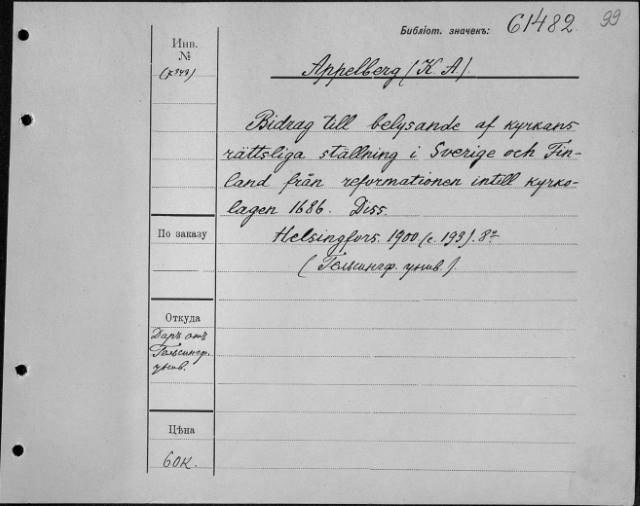 Библіот. значекъ: 61482 99
Инв.
№
Appelberg (K. A.)
Bidrag till belysande af kyrkans
rättsliga ställning i Sverige och Fin-
land från reformationen intill kyrko-
lagen 1686. Diss.
По заказу
Helsingfors. 1900. (с. 193). 8º
(Гельсингф. унив.).
Откуда
Даръ отъ
Гельсингф.
унив.
Цѣна
60к.